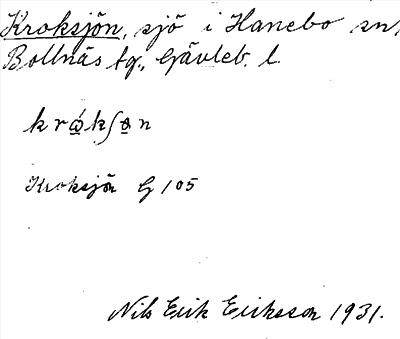 Kroksjön, sjö i Hanebo sn,
Bollnäs tg., Gävleb. l.
krǫ́kʃo̱n
Kroksjön G 105
Nils Erik Eriksson 1931.